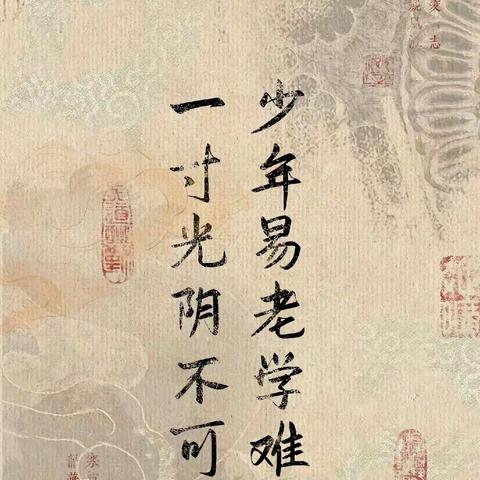 少年易老学难
一寸光阴不可